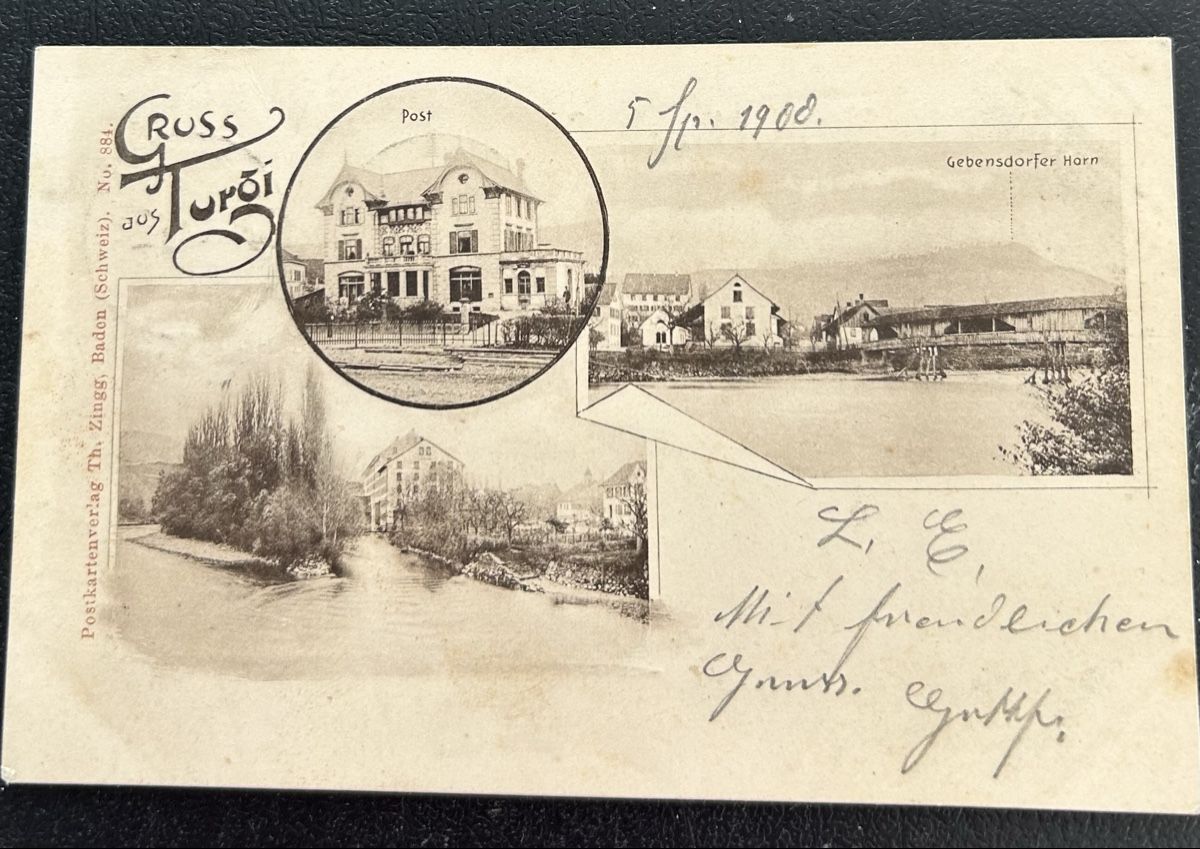 Gruss
aus Turgi
Post
5 Sp. 1908.
Gebensdorfer Horn
Postkartenverlag Th. Zingg, Baden (Schweiz). No. 884.
L. E.
Mit freundlichen
Gruss.